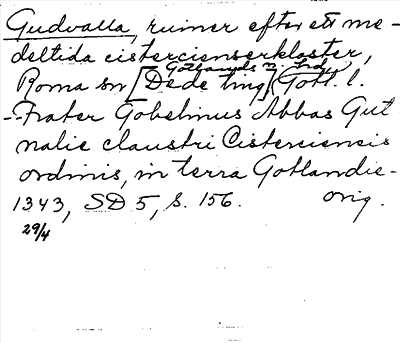 Gudvalla, ruiner efter ett me-
deltida cistercienserkloster,
Gotlands n. hrd,
Roma sn [Dede ting], Gotl. l.
-Frater Gobelinus Abbas Gut-
nalie claustri Cisterciensis
ordinis, in terra Gotlandie-
1343, SD 5, s. 156. orig.
29/4